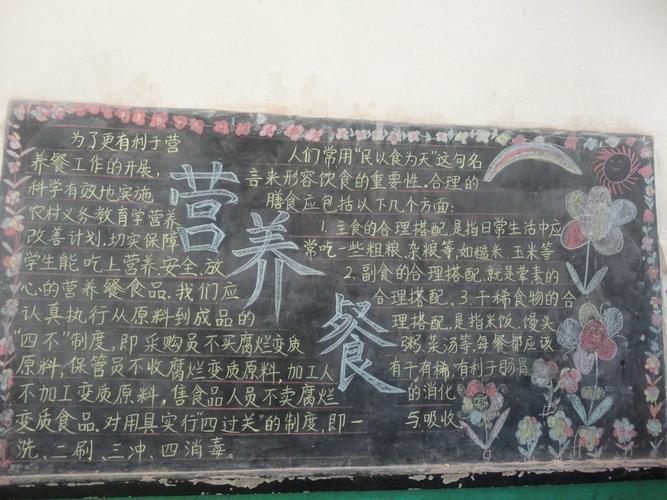 营养餐
为了更有利于营
养餐工作的开展,
科学有效地实施
农村义务教育学营养
改善计划.切实保障
学生能吃上营养.安全.放
心的营养餐食品.我们应
认真执行从原料到成品的
"四不"制度.即采购员不买腐烂变质
原料,保管员不收腐烂变质原料,加工人
不加工变质原料,售食品人员不卖腐烂
变质食品.对用具实行"四过关"的制度,即一
洗、二刷、三冲、四消毒。
人们常用"民以食为天"这句名
言来形容饮食的重要性。合理的
膳食应包括以下几个方面:
1.主食的合理搭配,是指日常生活中应
常吃一些粗粮、杂粮等,如糙米、玉米等
2.副食的合理搭配,就是荤素的
合理搭配.3.干稀食物的合
理搭配.是指米饭、馒头
粥、菜汤等,每餐都应该
有干有稀,有利于肠胃
的消化
与吸收